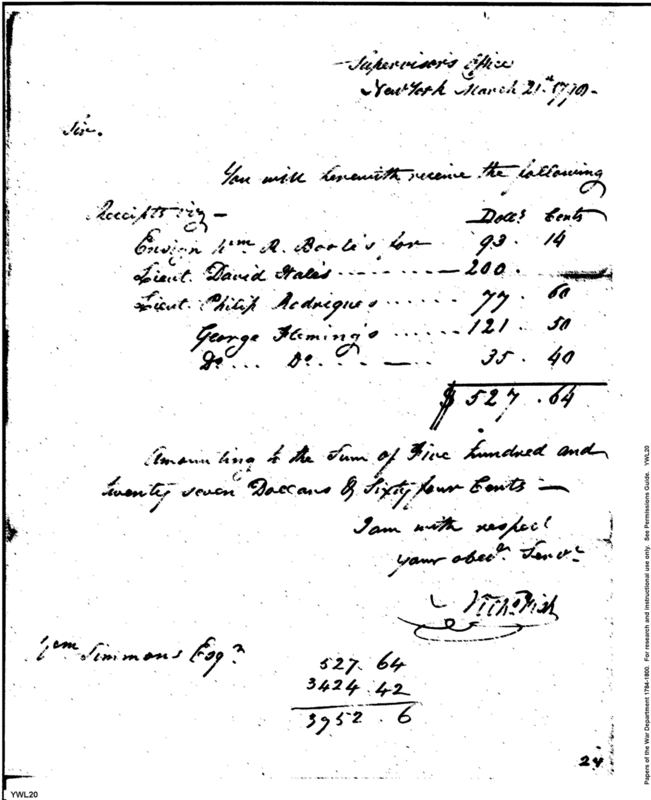 Supervisor's Office
New York March 21st
Sir.
You will herewith receive the following
Receipts viz — Dolls Cents
Ensign Wm A. Boote's for 93. 14
Lieut. David Hale's - - - - - - - - 200.
Lieut. Philip Rodrigues . . . . . . 77. 60
George Fleming's . . . . . . 121. 50
Do . . . Do . . . . — 35. 40
$ 527. 64
Amounting to the Sum of Five hundred and
twenty seven Dollars & Sixty four Cents —
I am with respect
your obedt. Servt.
Nichs Fish
Wm Simmons Esqr.
527. 64
3424 42
3952. 6
24
YWL20
Papers of the War Department 1784-1800. For research and instructional use only. See Permissions Guide. YWL20